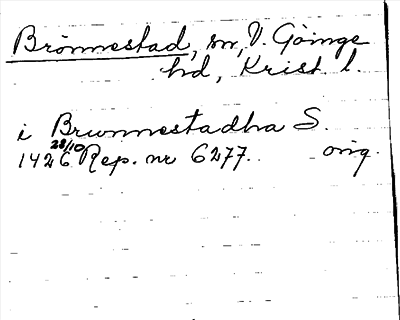 Brönnestad, sn, V. Göinge
hd, Krist. l.
i Brunnestadha S.
1426 28/10 Rep. nr 6277. orig.